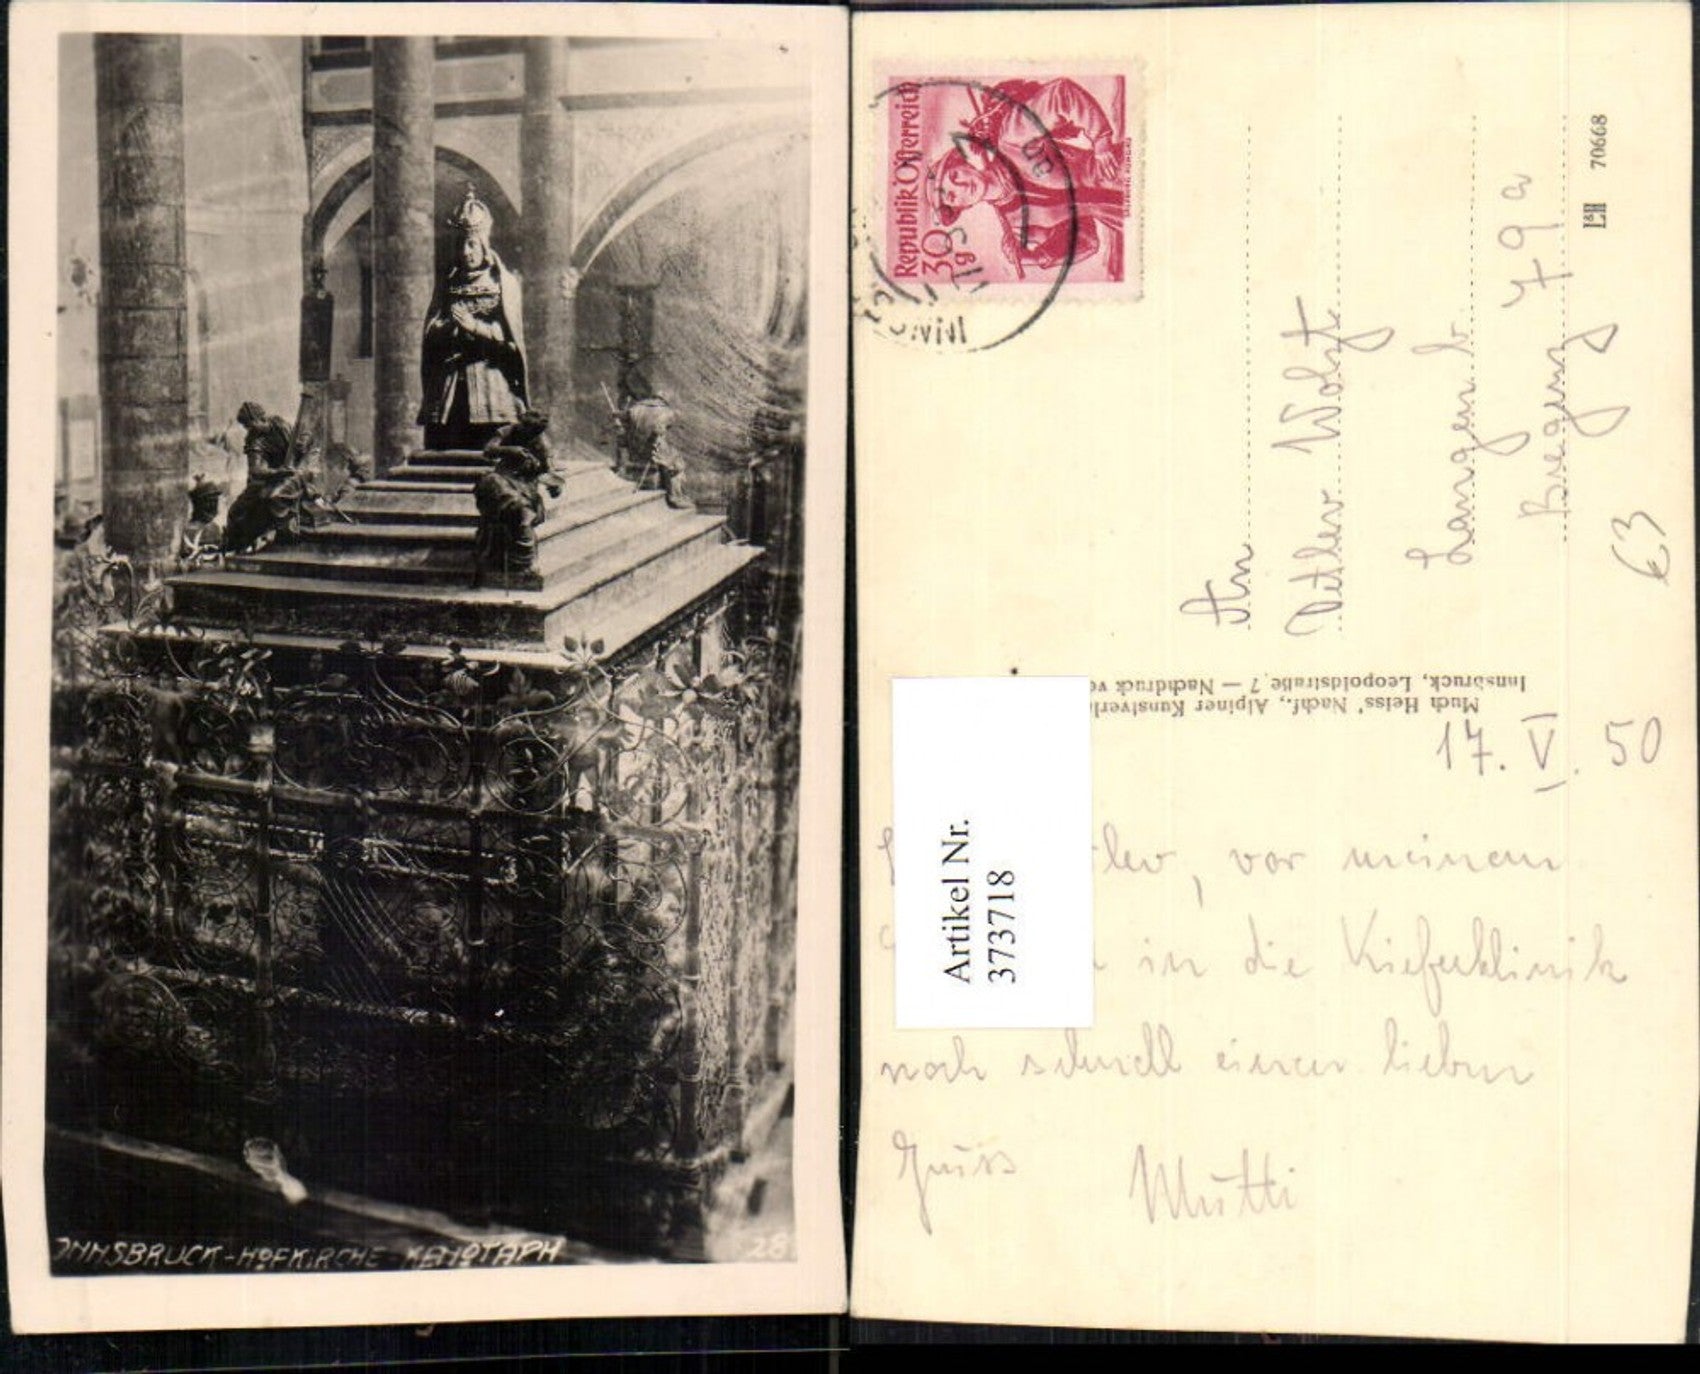 INNSBRUCK-HOFKIRCHE KENOTAPH 28
Republik Österreich
30 g
An
Detlev Wohlf
Langen b.
Bregenz 79a
L&H 70668
€3
Much Heiss' Nachf., Alpiner Kunstverl
Innsbruck, Leopoldstraße 7 — Nachdruck v
17. V. 50
Artikel Nr.
3733718
tlev, vor meinem
in die Kieferklinik
noch schnell einen lieben
Gruss Mutti